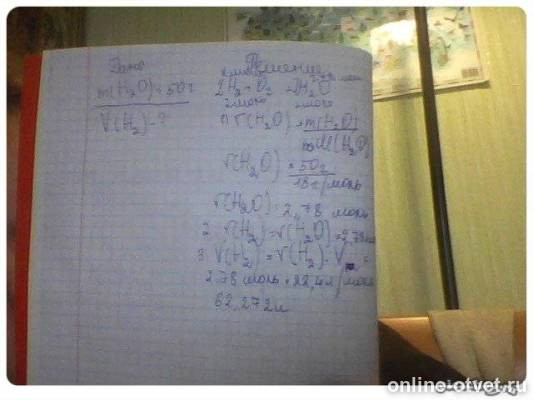 Дано
m(H₂O) = 50г
V(H₂) - ?
Решение
2H₂ + O₂ = 2H₂O
2моль 2моль
1) ν(H₂O) = m(H₂O)
M(H₂O)
ν(H₂O) = 50г
18г/моль
ν(H₂O) = 2,78 моль
2 ν(H₂) = ν(H₂O) = 2,78моль
3 V(H₂) = ν(H₂) · Vm =
2,78 моль · 22,4л/моль
62,272л
online-otvet.ru